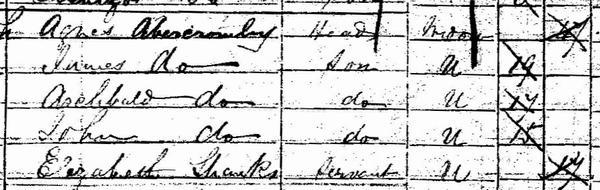 Agnes Abercromby Head Widow 47
James do Son U 19
Archibald do do U 17
John do do U 15
Elizabeth Shanks Servant U 17